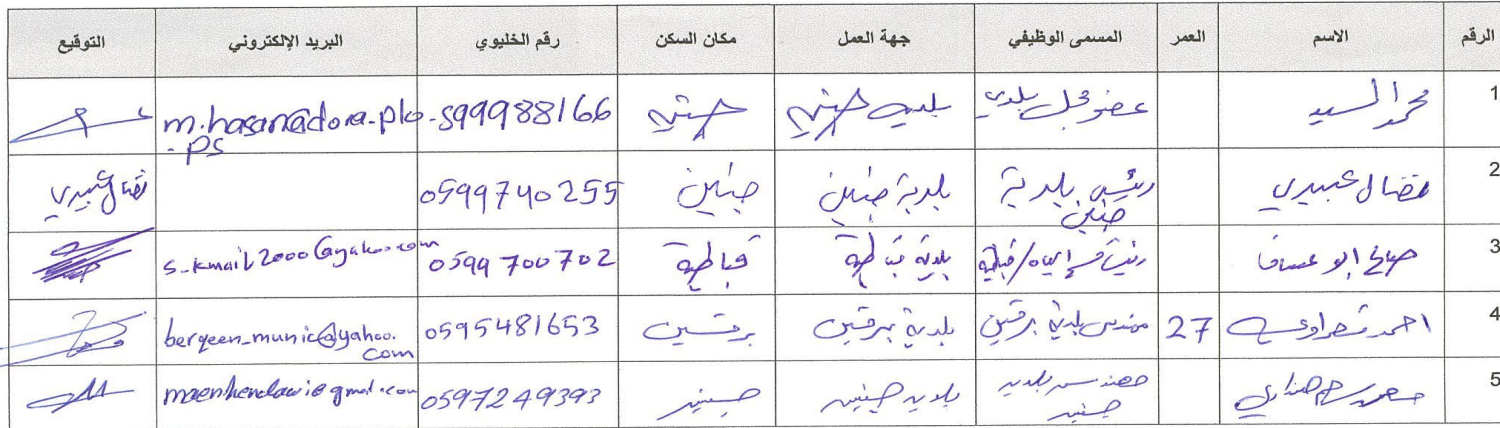 الرقم الاسم العمر المسمى الوظيفي جهة العمل مكان السكن رقم الخليوي البريد الإلكتروني التوقيع
1 محمد السيد عضو مجلس بلدي بلدية جنين جنين 0599988166
2 نضال عبيدي رئيس بلدية جنين بلدية جنين جنين 0599740255 نضال عبيدي
3 صالح ابو عساف بلدية قباطية قباطية 0599700702 s-kmail2000@yahoo.com
4 احمد 27 مهندس بلدية برقين بلدية برقين برقين 0595481653 berqeen-munic@yahoo.com
5 مهندس بلدية جنين بلدية جنين جنين 0597249393 maenhendawi@gmail.com